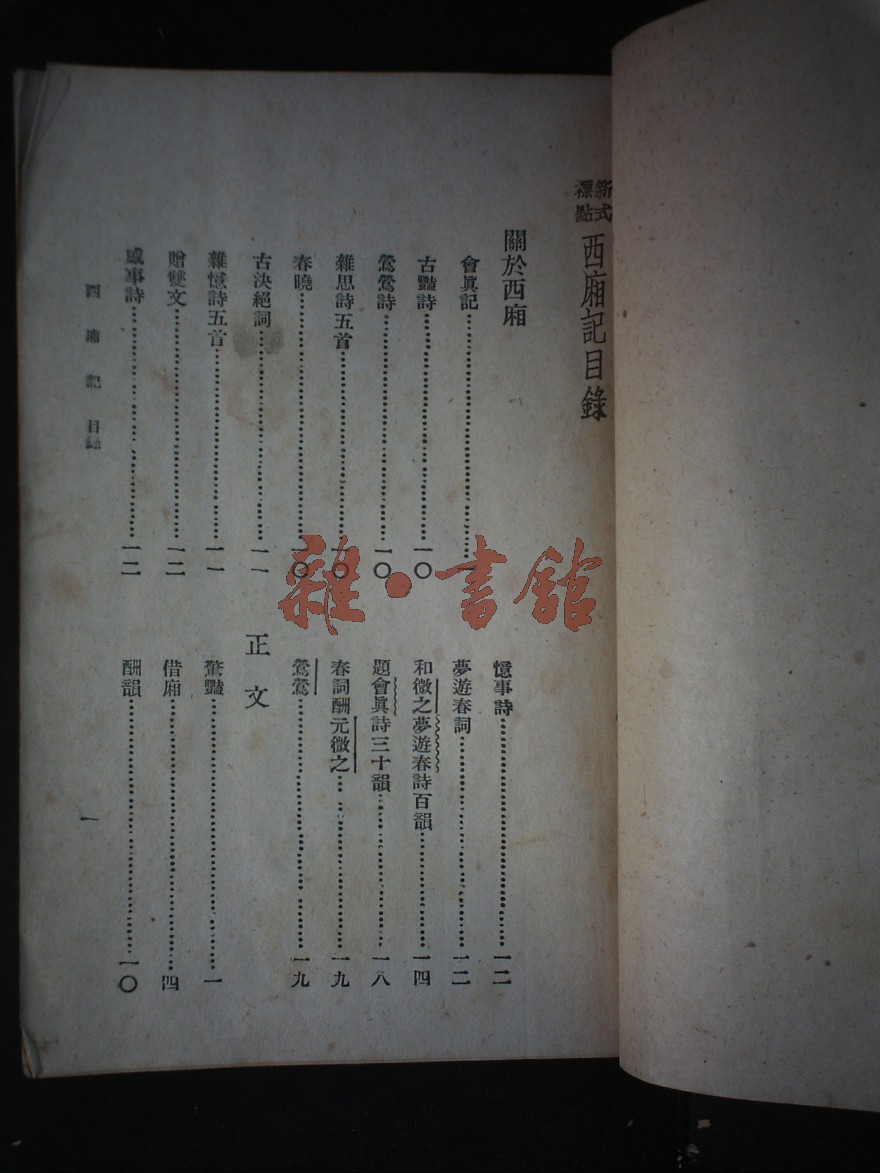 新式標點 西廂記目錄
關於西廂
會眞記……一
古豔詩……一〇
鶯鶯詩……一〇
雜思詩五首……一〇
春曉……一〇
古決絕詞……一一
雜憶詩五首……一一
贈雙文……一二
感事詩……一二
憶事詩……一二
夢遊春詞……一二
和微之夢遊春詩百韻……一四
題會眞詩三十韻……一八
春詞酬元微之……一九
鶯鶯……一九
正文
驚豔……一
借廂……四
酬韻……一〇
西廂記 目錄
一
雜·書館